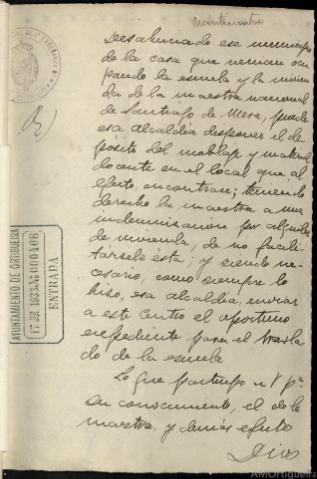 Desahuciado ese municipio
de la casa que venian ocu
pando la escuela y la vivien
da de la maestra nacional
de Santiago de Mera, puede
esa Alcaldia disponer el de
posito del moblaje y material
docente en el local que al
efecto, encontrase; teniendo
derecho la maestra a una
indemnisación por alquiler
de vivienda, de no facili
társele ésta; y siendo ne
cesario, como siempre lo
hiso, esa alcaldia, enviar
a este centro el oportuno
expediente para el trasla
do de la escuela
Lo que participo a V pª
su conocimiento, el de la
maestra, y demás efectos
Dios
AYUNTAMIENTO DE ORTIGUEIRA
ENTRADA
AMOrtigueira